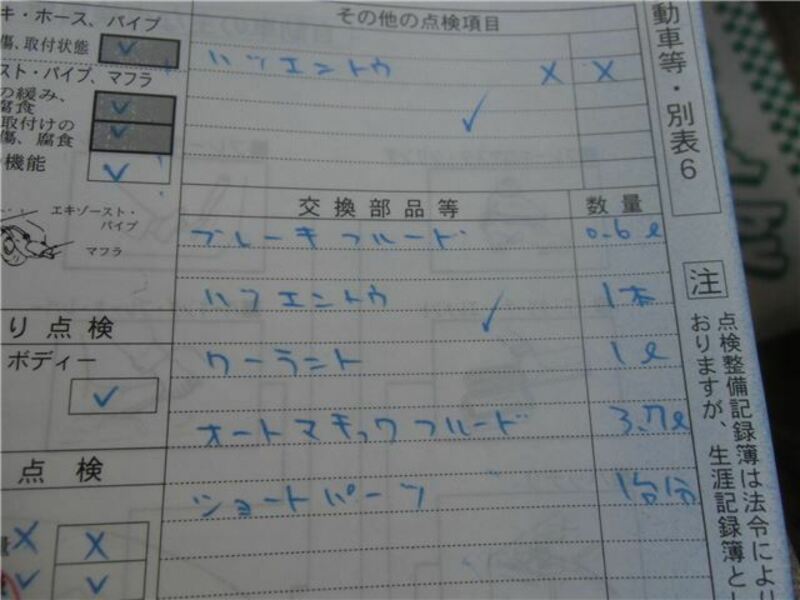 キ・ホース、パイプ
傷、取付状態
スト・パイプ、マフラ
の緩み、
腐食
取付けの
傷、腐食
機能
エキゾースト・
パイプ
マフラ
り点検
ボディー
点検
その他の点検項目
ハツエントウ X X
交換部品等 数量
ブレーキフルード 0.6ℓ
ハフエントウ 1本
クーラント 1ℓ
オートマチックフルード 3.7ℓ
ショートパーツ 1台分
動車等・別表6
注
点検整備記録簿は法令により
おりますが、生涯記録簿とし